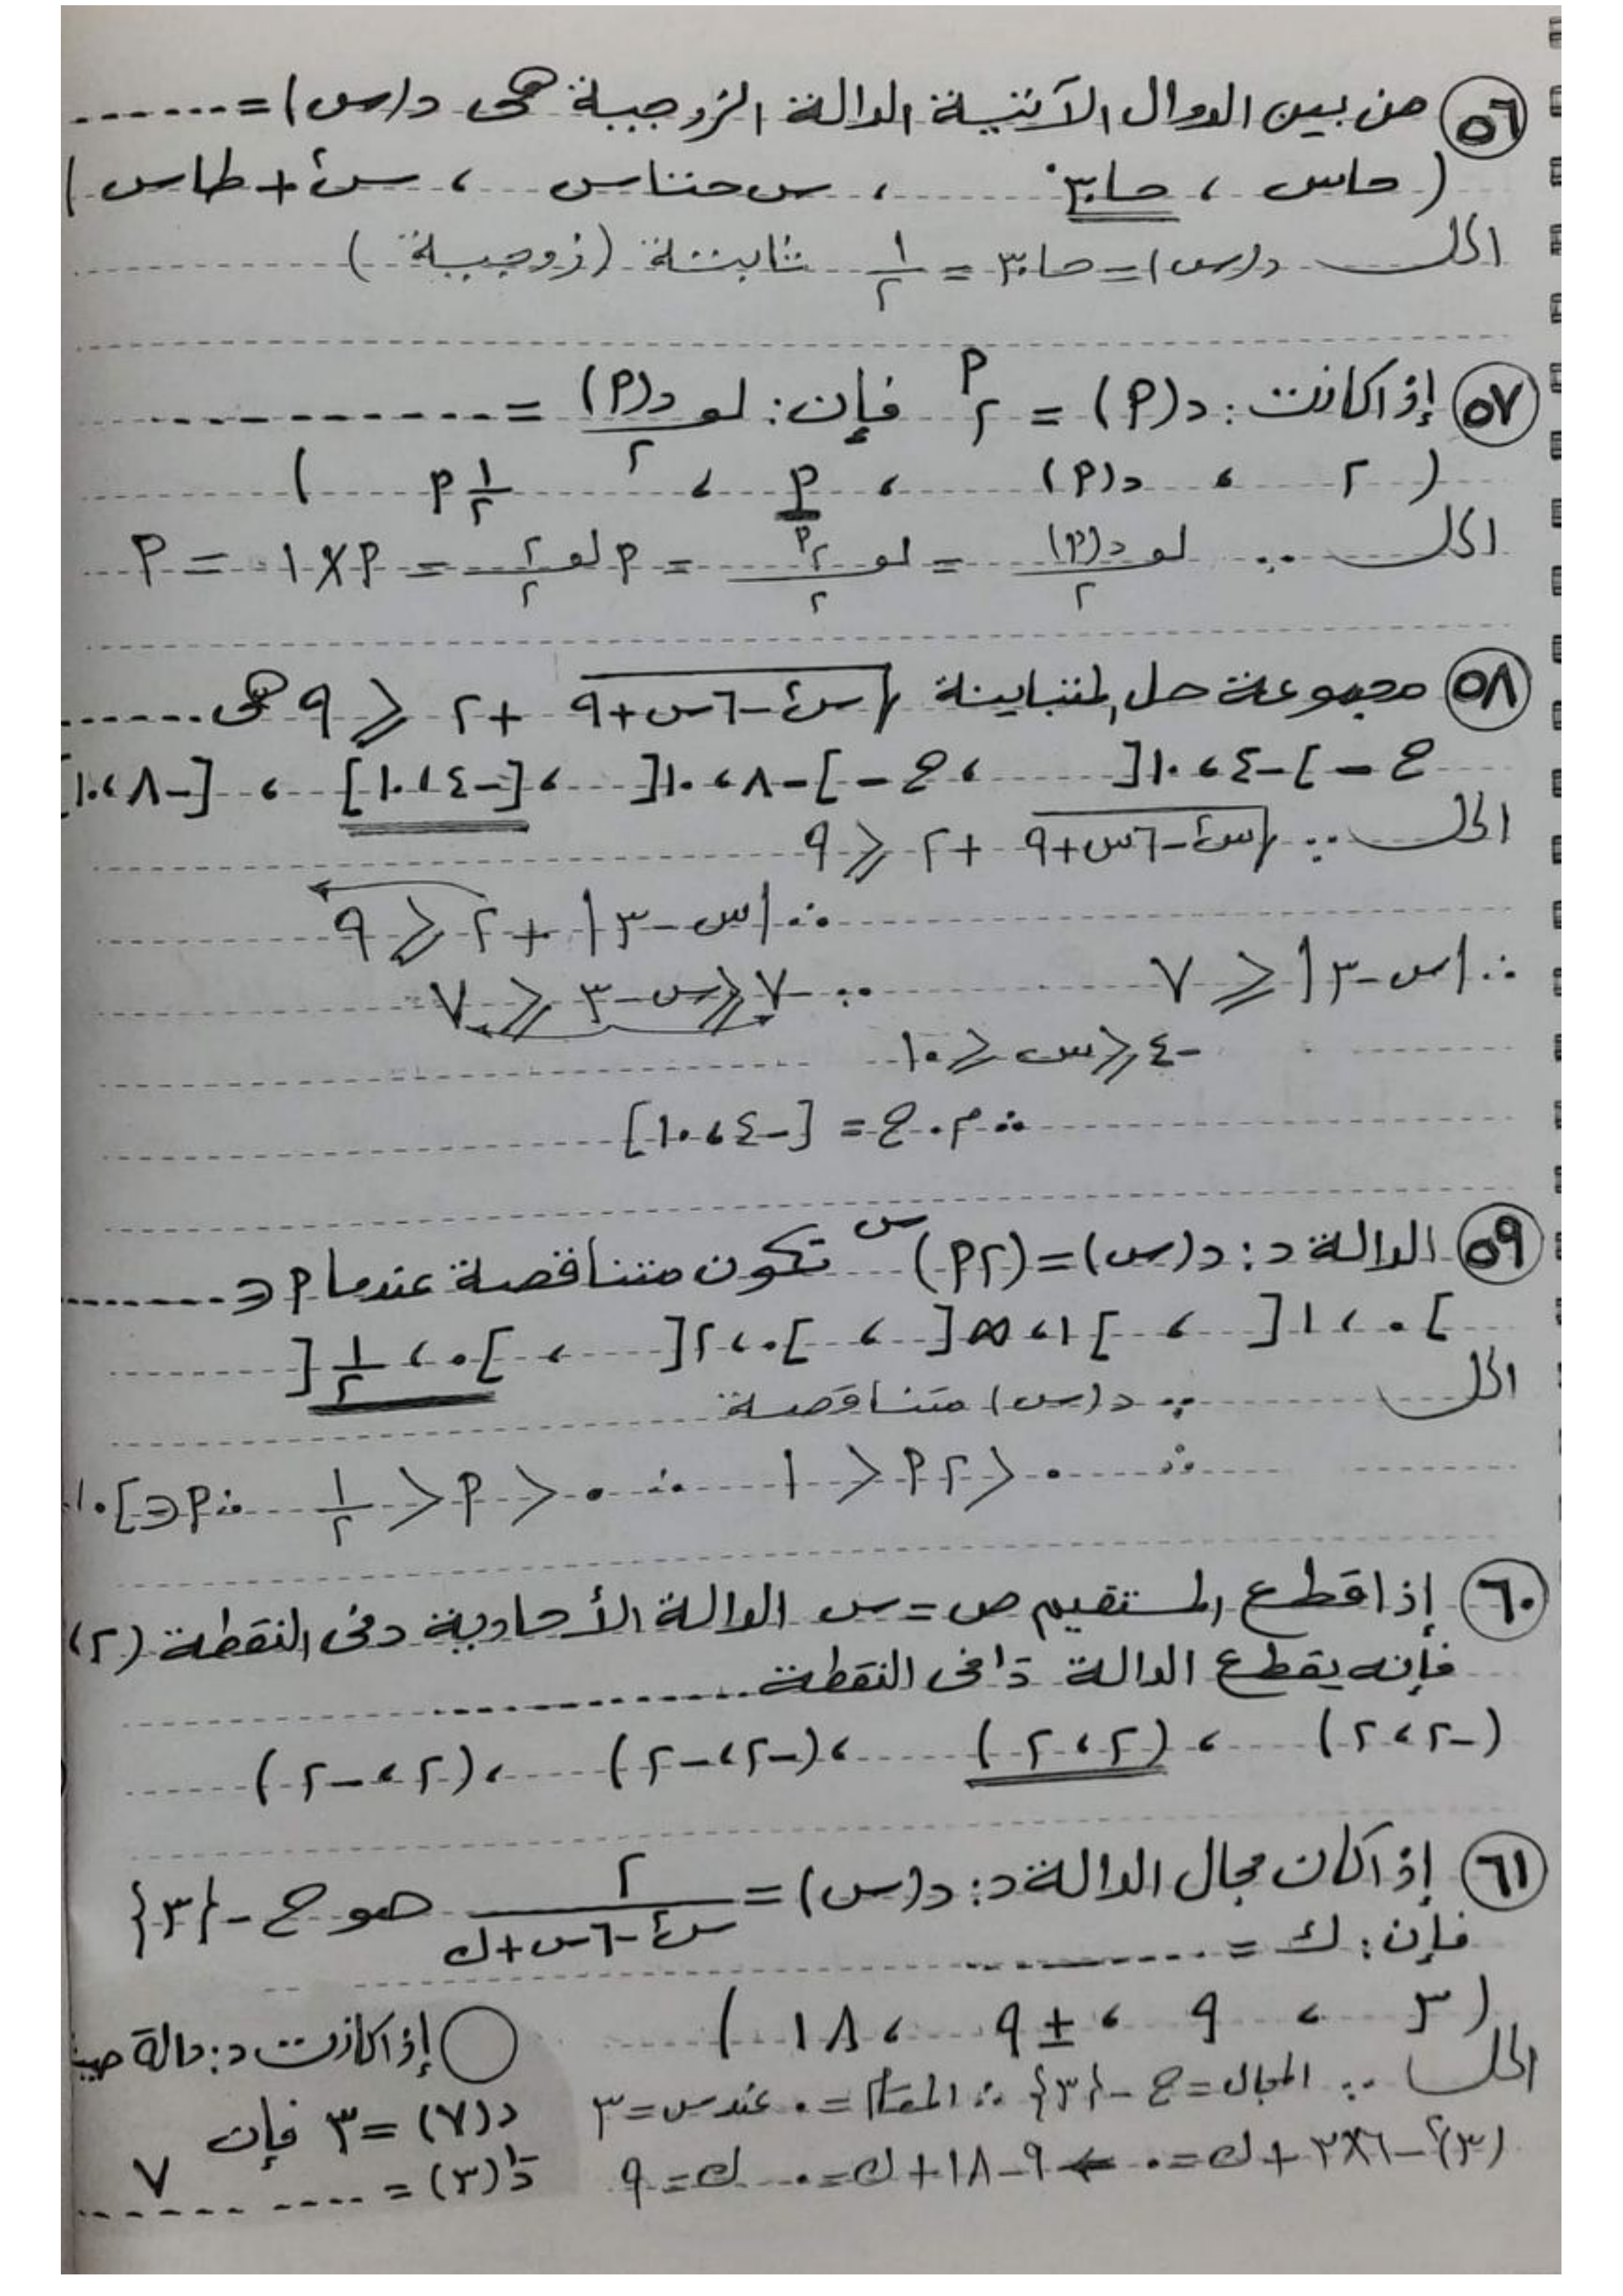 ٥٦ من بين الدوال الآتية الدالة الزوجية هى د(س) = ......
( حاس ، حا٣٠° ، س حتاس ، س٢ + طاس )
الحل د(س) = حا٣٠ = ١/٢ ثابتة (زوجية)
٥٧ إذا كانت : د(٩) = ٢^٩ فإن : لو٢ د(٩) = ............
( ٢ ، د(٩) ، ٩ ، ١/٢ ٩ )
الحل ∵ لو٢ د(٩) = لو٢ ٢^٩ = ٩ لو٢ ٢ = ٩ × ١ = ٩
٥٨ مجموعة حل المتباينة √(س٢ - ٦س + ٩) + ٢ ≤ ٩ هى ......
ح - ]-٤ ، ١٠[ ، ح - ]-٨ ، ١٠[ ، [-٤ ، ١٠] ، [-٨ ، ١٠
الحل ∵ √(س٢ - ٦س + ٩) + ٢ ≤ ٩
∴ |س - ٣| + ٢ ≤ ٩
∴ |س - ٣| ≤ ٧ ∴ -٧ ≤ س - ٣ ≤ ٧
-٤ ≤ س ≤ ١٠
∴ م.ح = [-٤ ، ١٠]
٥٩ الدالة د : د(س) = (٢٩)^س تكون متناقصة عندما ٩ ∈ .......
]٠ ، ١[ ، ]١ ، ∞[ ، ]٠ ، ٢[ ، ]٠ ، ١/٢[
الحل ∵ د(س) متناقصة
∴ ٠ < ٢٩ < ١ ∴ ٠ < ٩ < ١/٢ ∴ ٩ ∈ ]٠ ،
٦٠ إذا قطع المستقيم ص = س الدالة الأحادية د فى النقطة (٢ ،
فإنه يقطع الدالة د⁻¹ فى النقطة ............
(-٢ ، ٢) ، (٢ ، ٢) ، (-٢ ، -٢) ، (٢ ، -٢)
٦١ إذا كان مجال الدالة د : د(س) = ٢/(س٢ - ٦س + ك) هو ح - {٣}
فإن : ك = ............
( ٣ ، ٩ ، ±٩ ، ١٨ )
الحل ∵ المجال = ح - {٣} ∴ المقام = ٠ عند س = ٣
(٣)٢ - ٦×٣ + ك = ٠ ← ٩ - ١٨ + ك = ٠ ك = ٩
إذا كانت د : دالة حيث
د(٧) = ٣ فإن
د⁻¹(٣) = .... ٧ ......